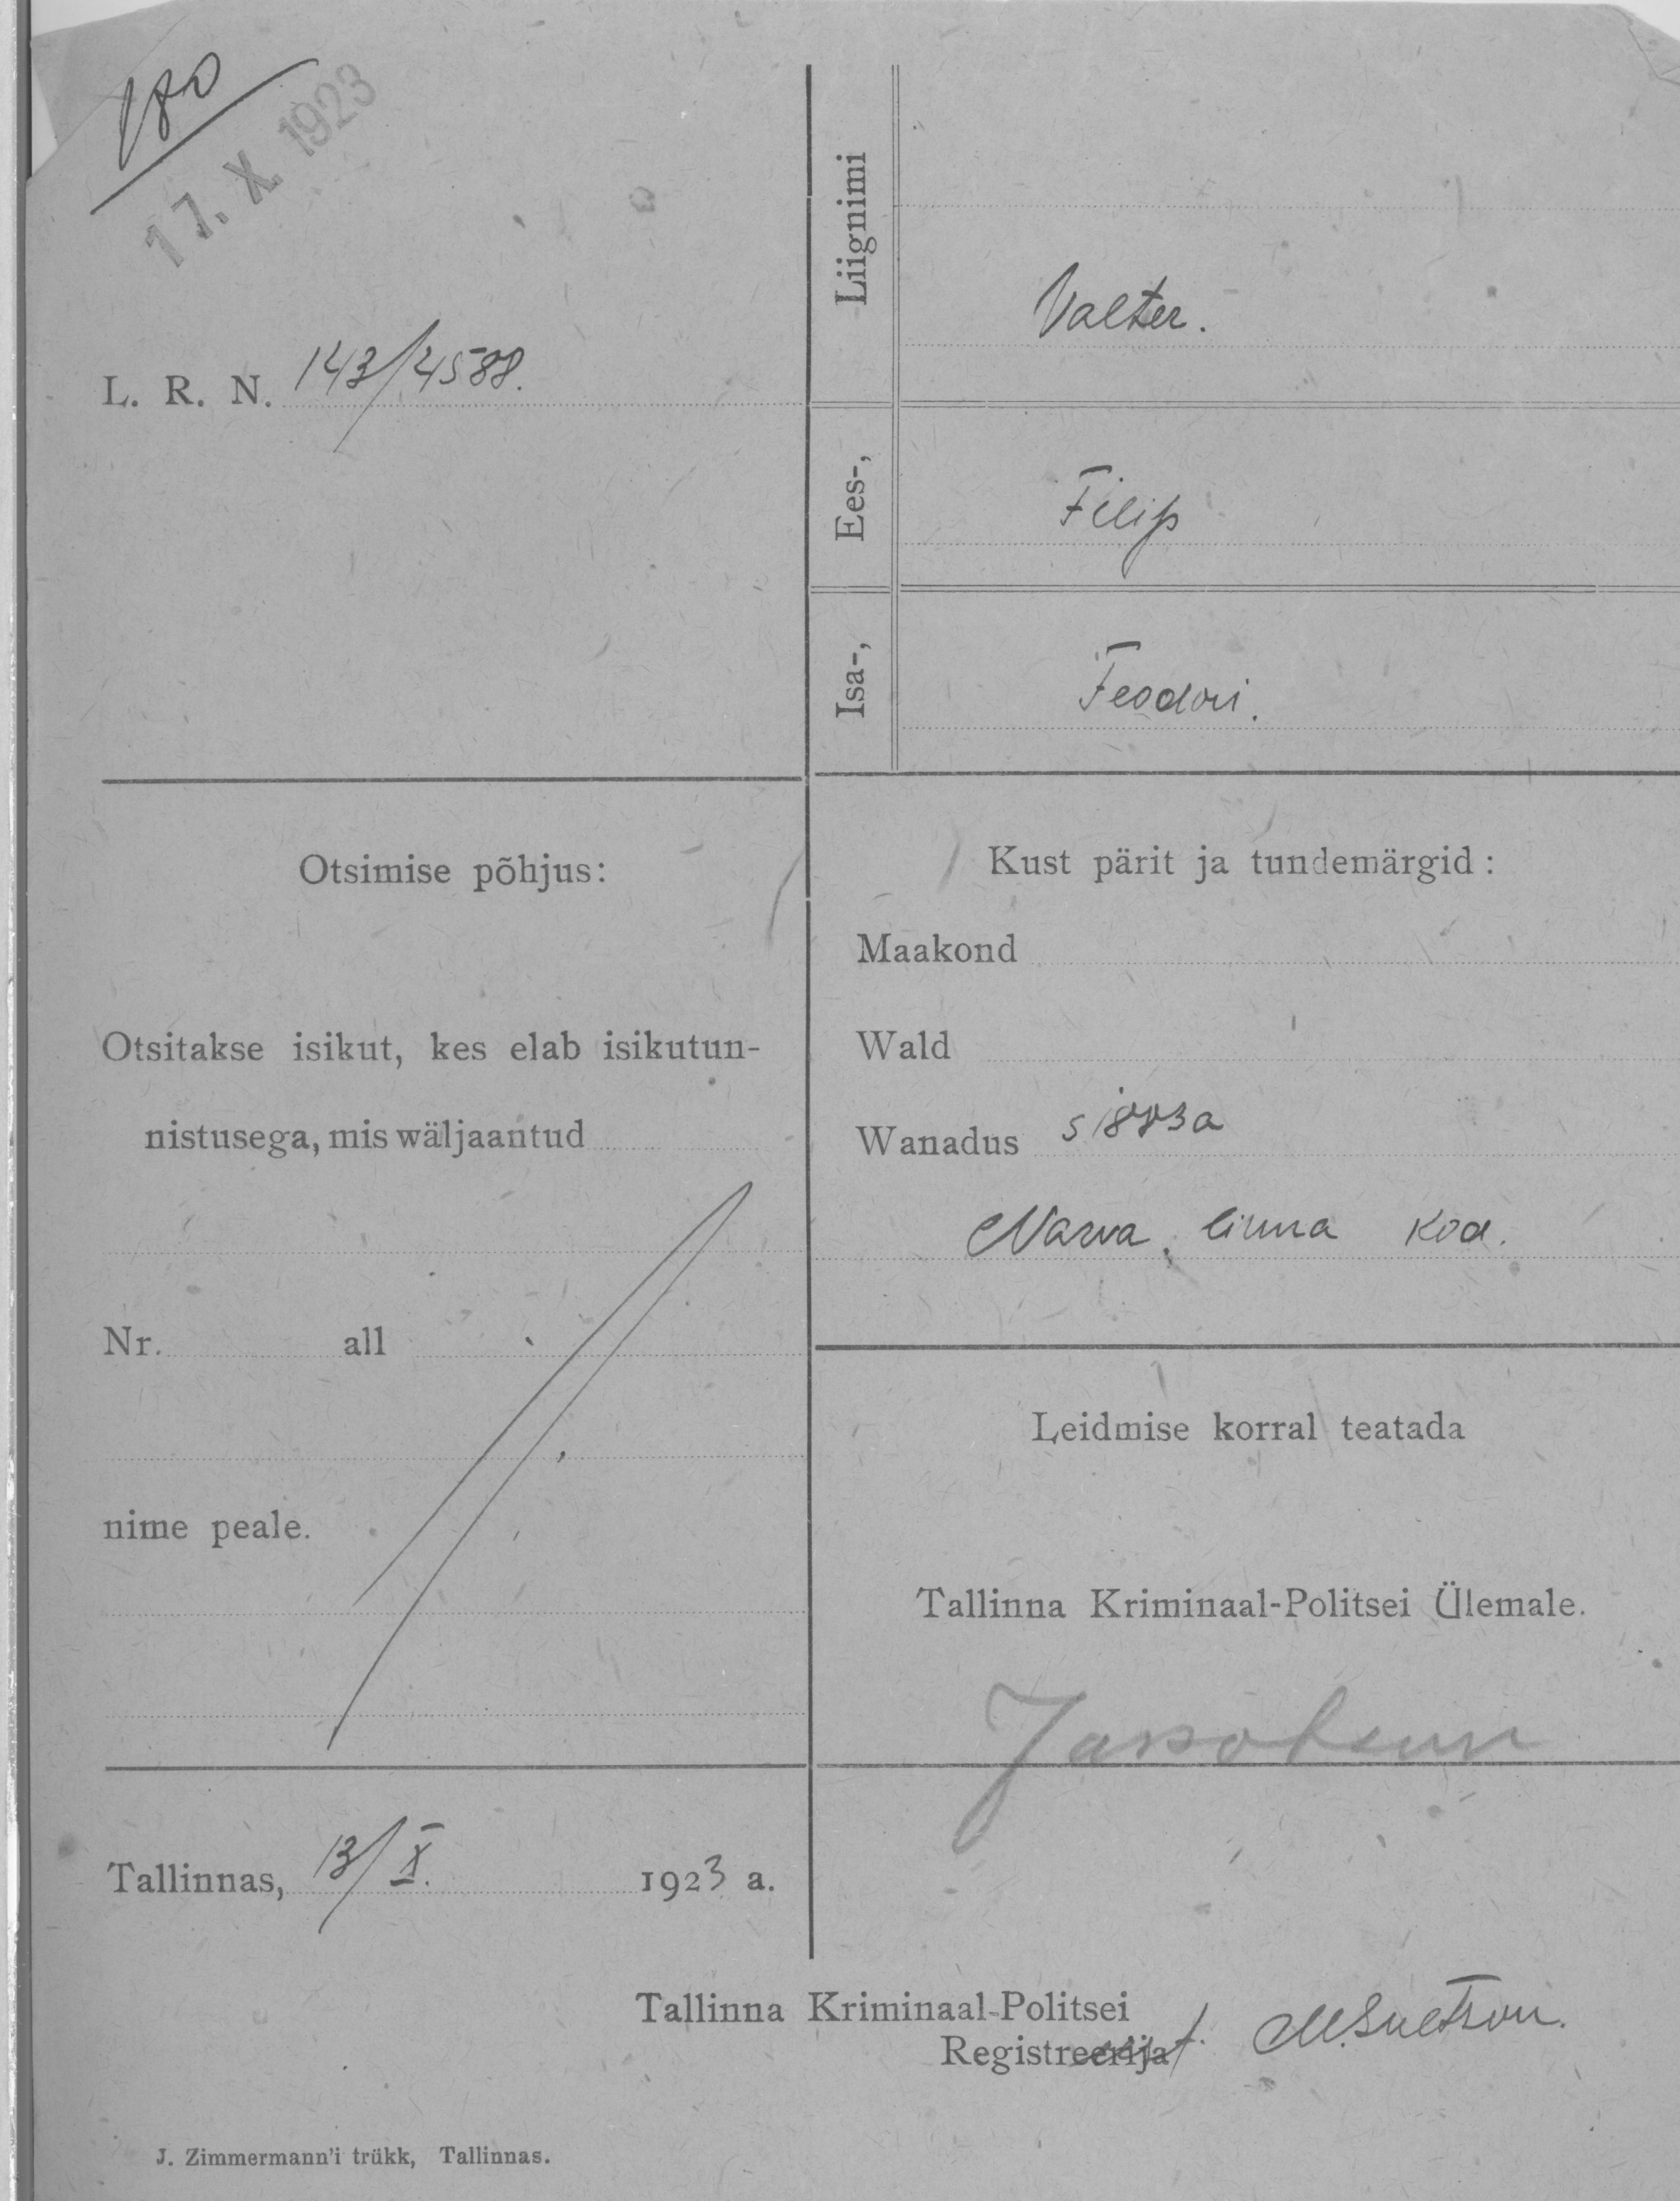 180
17. X. 1923
L. R. N. 143/4588.
Liignimi
Valter.
Ees-,
Filip
Isa-,
Feodori.
Otsimise põhjus:
Otsitakse isikut, kes elab isikutun-
nistusega, mis wäljaantud
Nr. all
nime peale.
Tallinnas, 13/X. 1923 a.
Kust pärit ja tundemärgid:
Maakond
Wald
Wanadus s 1883 a
Narva, linna kod.
Leidmise korral teatada
Tallinna Kriminaal-Politsei Ülemale.
Tallinna Kriminaal-Politsei
Registreerija
J. Zimmermann'i trükk, Tallinnas.